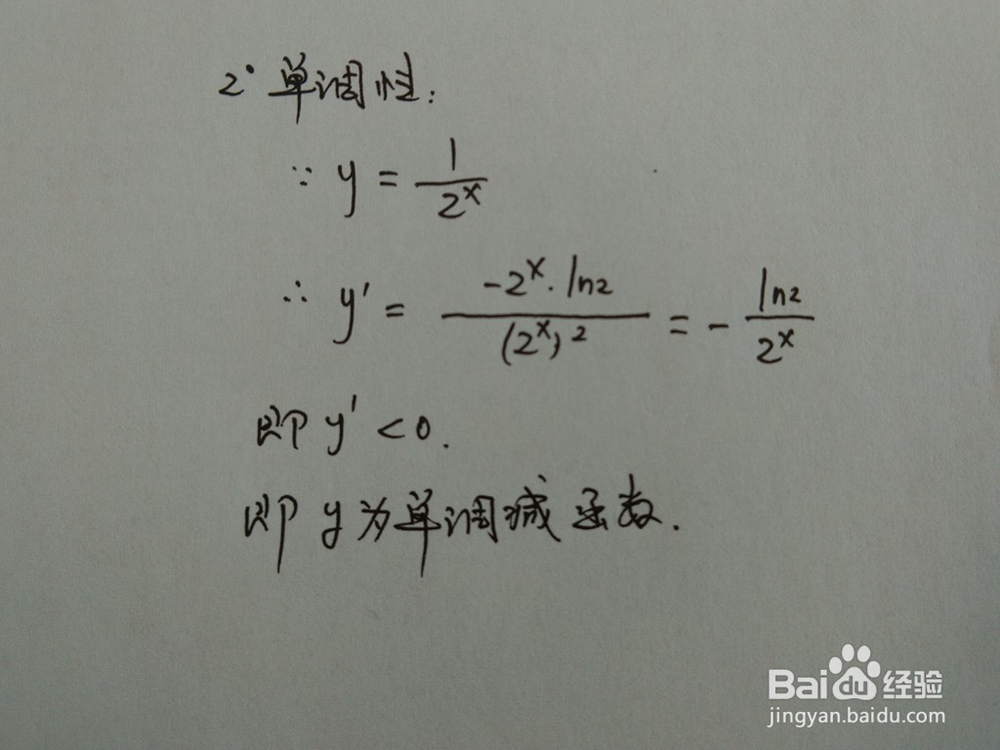 2° 单调性:
∵ y = 1/2^x
∴ y' = -2^x · ln2/(2^x)^2 = - ln2/2^x
即 y' < 0.
即 y 为单调减函数.
Baidu经验
jingyan.baidu.com